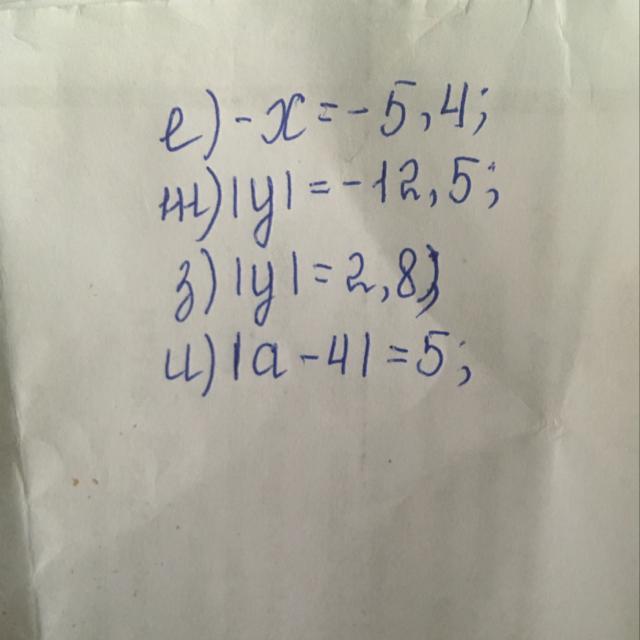 е) -x = -5,4;
ж) |y| = -12,5;
з) |y| = 2,8;
и) |a - 4| = 5;